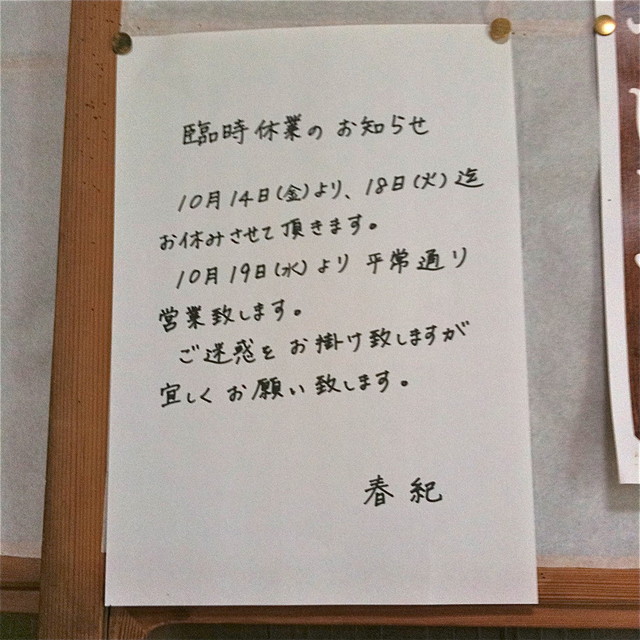 臨時休業のお知らせ
10月14日(金)より、18日(火)迄
お休みさせて頂きます。
10月19日(水)より平常通り
営業致します。
ご迷惑をお掛け致しますが
宜しくお願い致します。
春紀